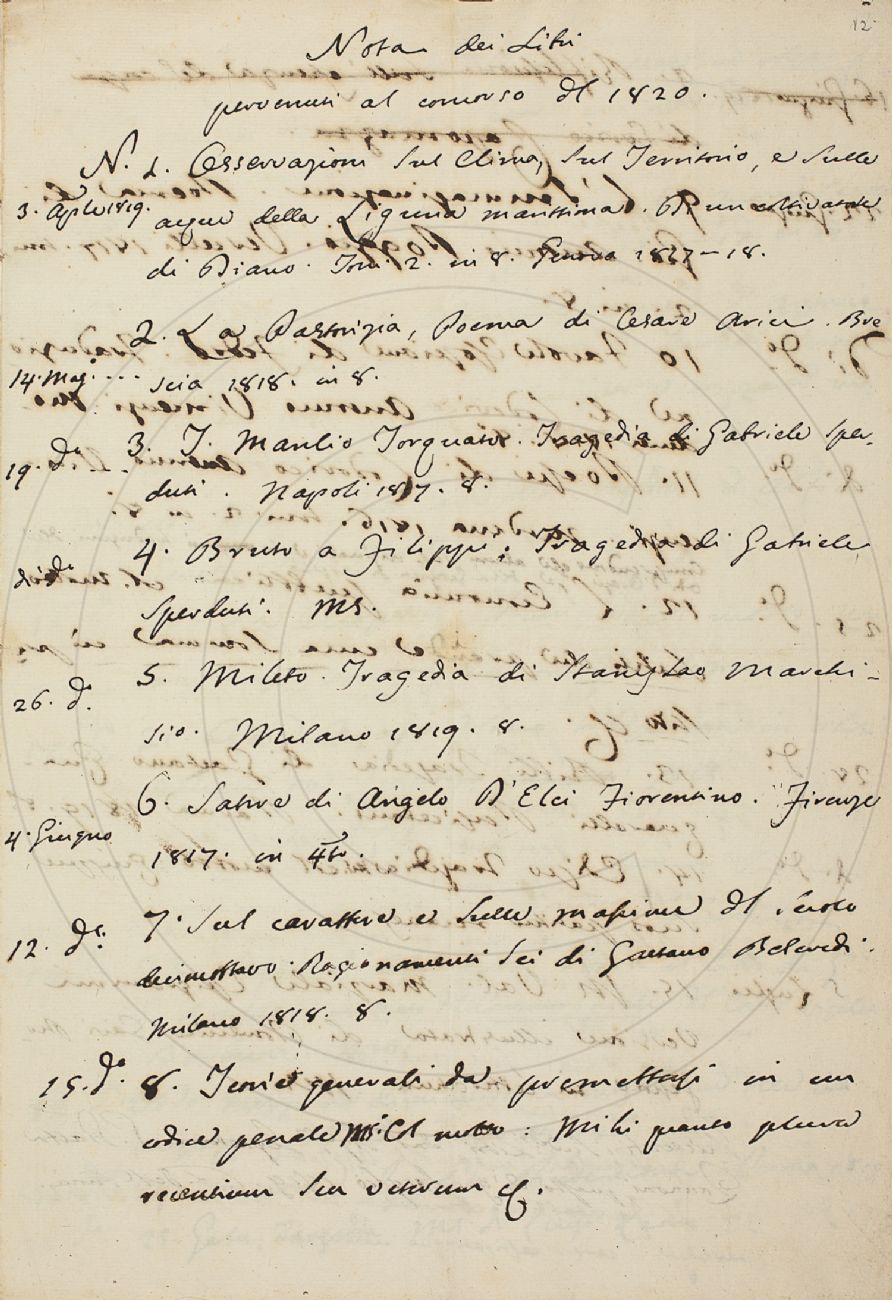 12
Nota dei Libri
pervenuti al concorso del 1820.
N. 1. Osservazioni sul Clima, sul Territorio, e sulle
3. Aple 1819. acque della Liguria marittima. Di un coltivatore
di Diano. Tom. 2. in 8. Genova 1817-18.
2. La Pastorizia, Poema di Cesare Arici. Bre
14. Mag. ... scia 1818. in 8.
19. do 3. T. Manlio Torquato. Tragedia di Gabriele Sper-
duti. Napoli 1817. 8.
di do 4. Bruto a Filippi; Tragedia di Gabriele
Sperduti. MS.
26. do. 5. Mileto. Tragedia di Stanislao Marchi-
sio. Milano 1819. 8.
6. Satire di Angelo D'Elci Fiorentino. Firenze
4. Giugno 1817. in 4to.
7. Sul carattere e sulle massime del secolo
12. do. decimottavo. Ragionamenti sei di Gaetano
Milano 1818. 8.
15. do. 8. Teorie generali da premettersi in un
codice penale MS. Col motto: Mihi quanto plura
recentium seu veterum